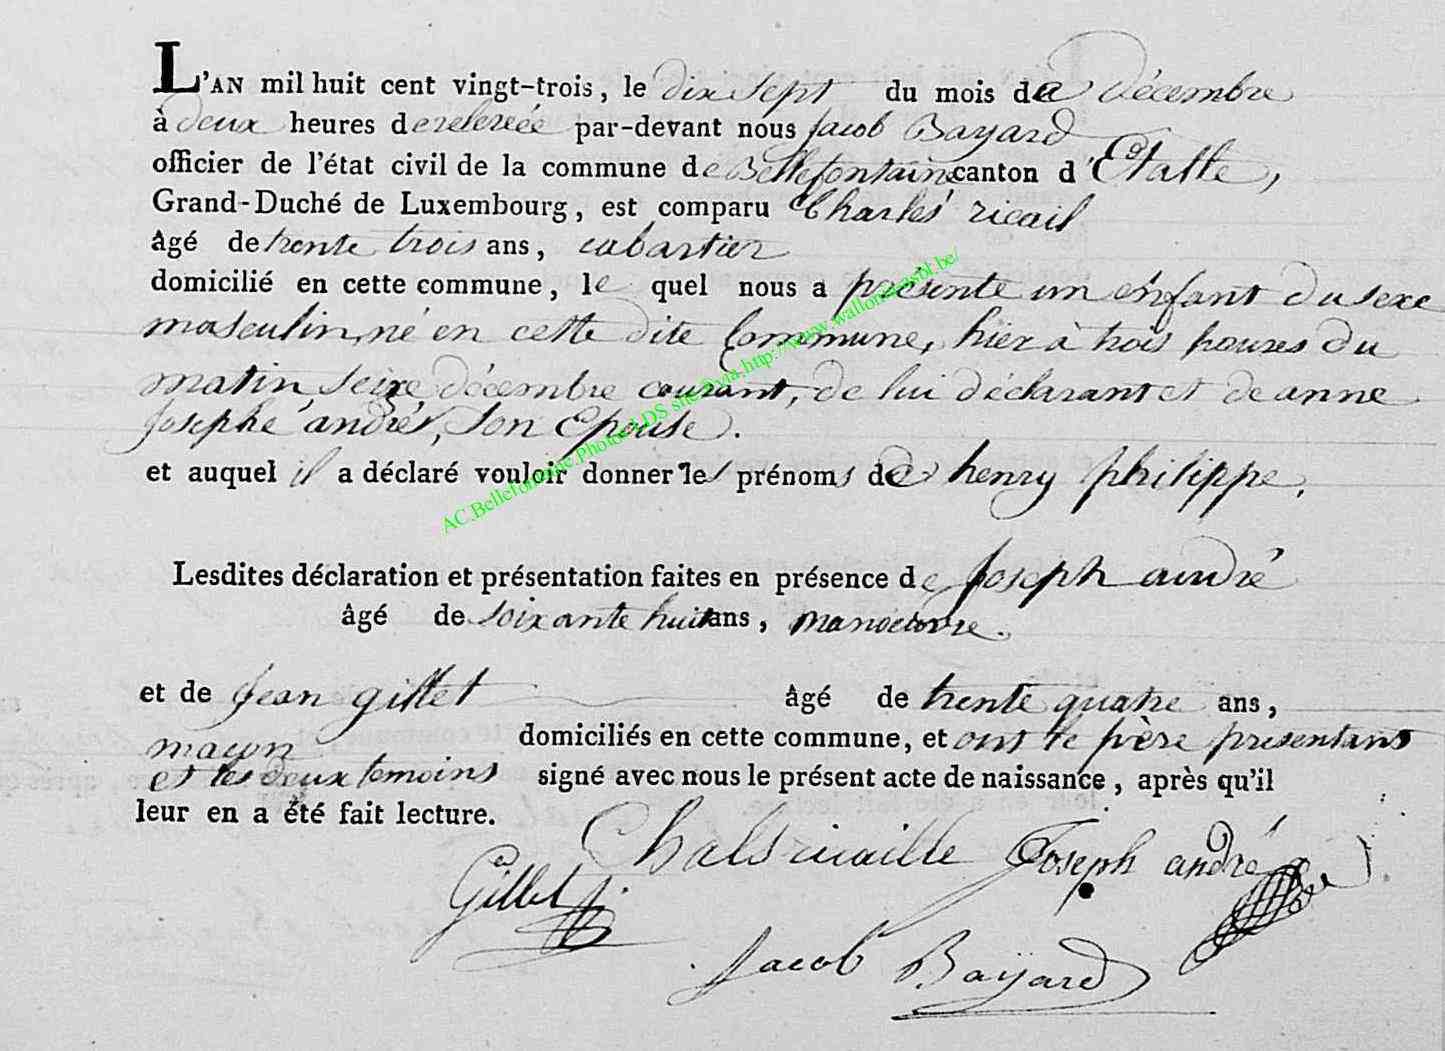 L'AN mil huit cent vingt-trois, le dix sept du mois de décembre
à deux heures de relevée par-devant nous Jacob Bayard
officier de l'état civil de la commune de Bellefontaine canton d'Etalle,
Grand-Duché de Luxembourg, est comparu Charles ricail
âgé de trente trois ans, cabartier
domicilié en cette commune, le quel nous a présenté un enfant du sexe
masculin, né en cette dite Commune, hier à trois heures du
matin, seize décembre courant, de lui déclarant et de anne
Josephe andré, son Epouse.
et auquel il a déclaré vouloir donner les prénoms de henry philippe.
Lesdites déclaration et présentation faites en présence de Joseph andré
âgé de soixante huit ans, manoeuvre.
et de Jean gillet âgé de trente quatre ans,
maçon domiciliés en cette commune, et ont le père présentans
et les deux temoins signé avec nous le présent acte de naissance, après qu'il
leur en a été fait lecture.
Joseph andré
Gillet j.
Jacob Bayard
AC.Bellefontaine.Photos.LDS sited via.http://www.wallonica